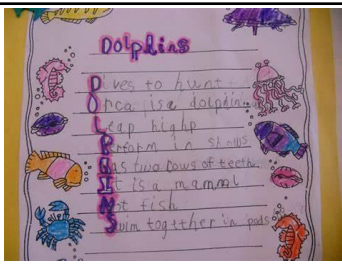 Dolphins
Dives to hunt
Orca is a dolphin
Leap high
Perform in shows
Has two rows of teeth.
It is a mammal
Not fish
Swim together in pods